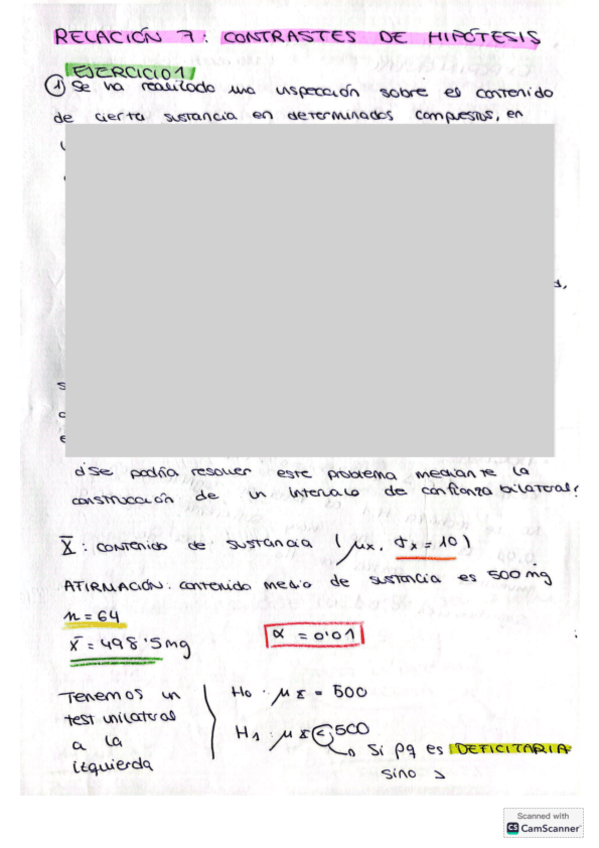 RELACIÓN 7: CONTRASTES DE HIPÓTESIS
EJERCICIO 1
① Se ha realizado una inspección sobre el contenido
de cierta sustancia en determinados compuestos, en
¿Se podría resolver este problema mediante la
construcción de un intervalo de confianza bilateral?
X̄ : contenido de sustancia (μx, σx = 10)
AFIRMACIÓN: contenido medio de sustancia es 500 mg
n = 64
x̄ = 498'5 mg
α = 0'01
Tenemos un
test unilateral
a la
izquierda
H0 : μx = 500
H1 : μx < 500
Si pq es DEFICITARIA
sino >
Scanned with
CS CamScanner